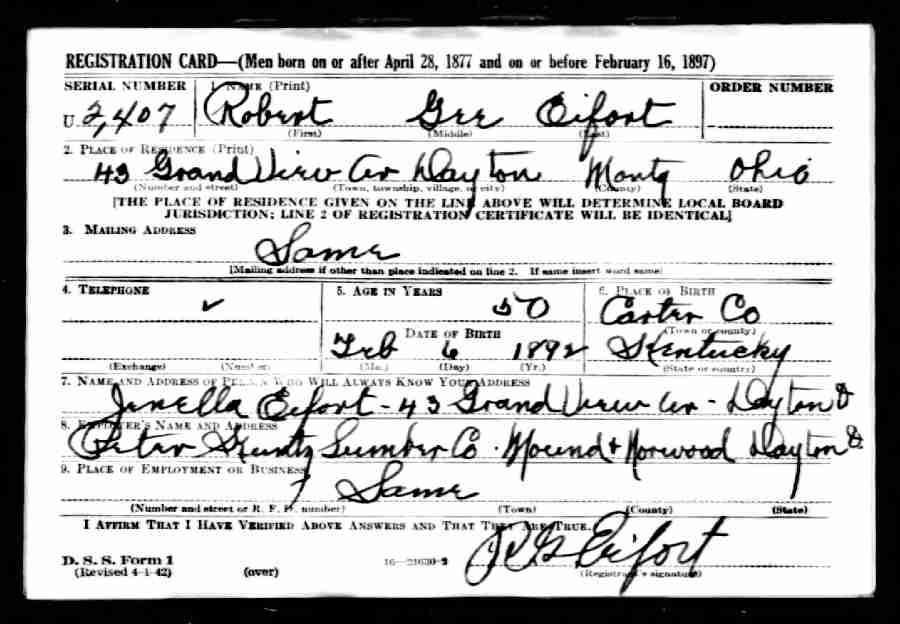 REGISTRATION CARD—(Men born on or after April 28, 1877 and on or before February 16, 1897)
SERIAL NUMBER 1. NAME (Print) ORDER NUMBER
U 2,407 Robert Gee Eifort
(First) (Middle) (Last)
2. PLACE OF RESIDENCE (Print)
43 Grand View Av Dayton Montg Ohio
(Number and street) (Town, township, village, or city) (County) (State)
[THE PLACE OF RESIDENCE GIVEN ON THE LINE ABOVE WILL DETERMINE LOCAL BOARD
JURISDICTION; LINE 2 OF REGISTRATION CERTIFICATE WILL BE IDENTICAL]
3. MAILING ADDRESS
Same
[Mailing address if other than place indicated on line 2. If same insert word same]
4. TELEPHONE 5. AGE IN YEARS 6. PLACE OF BIRTH
✓ 50 Carter Co
DATE OF BIRTH (Town or county)
Feb 6 1892 Kentucky
(Exchange) (Number) (Mo.) (Day) (Yr.) (State or country)
7. NAME AND ADDRESS OF PERSON WHO WILL ALWAYS KNOW YOUR ADDRESS
Jenella Eifort - 43 Grand View Av - Dayton O
8. EMPLOYER'S NAME AND ADDRESS
Peter Kuntz Lumber Co. Mound + Norwood Dayton O
9. PLACE OF EMPLOYMENT OR BUSINESS
Same
(Number and street or R. F. D. number) (Town) (County) (State)
I AFFIRM THAT I HAVE VERIFIED ABOVE ANSWERS AND THAT THEY ARE TRUE.
D. S. S. Form 1
(Revised 4-1-42) (over) 16—21630-2 R G Eifort
(Registrant's signature)